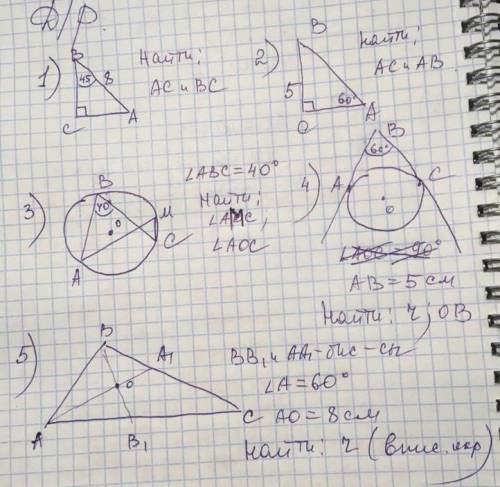 Д/Р.
1)
B
45
8
C
A
Найти:
AC и BC
2)
B
5
60°
C
A
Найти:
AC и AB
3)
B
40
O
M
C
A
∠ABC = 40°
Найти:
∠AMC,
∠AOC
4)
B
60°
A
C
O
AB = 5 см
Найти: r; OB
5)
B
A₁
O
A
B₁
C
BB₁ и AA₁ - бис-сы
∠A = 60°
AO = 8 см
Найти: r (впис. окр)